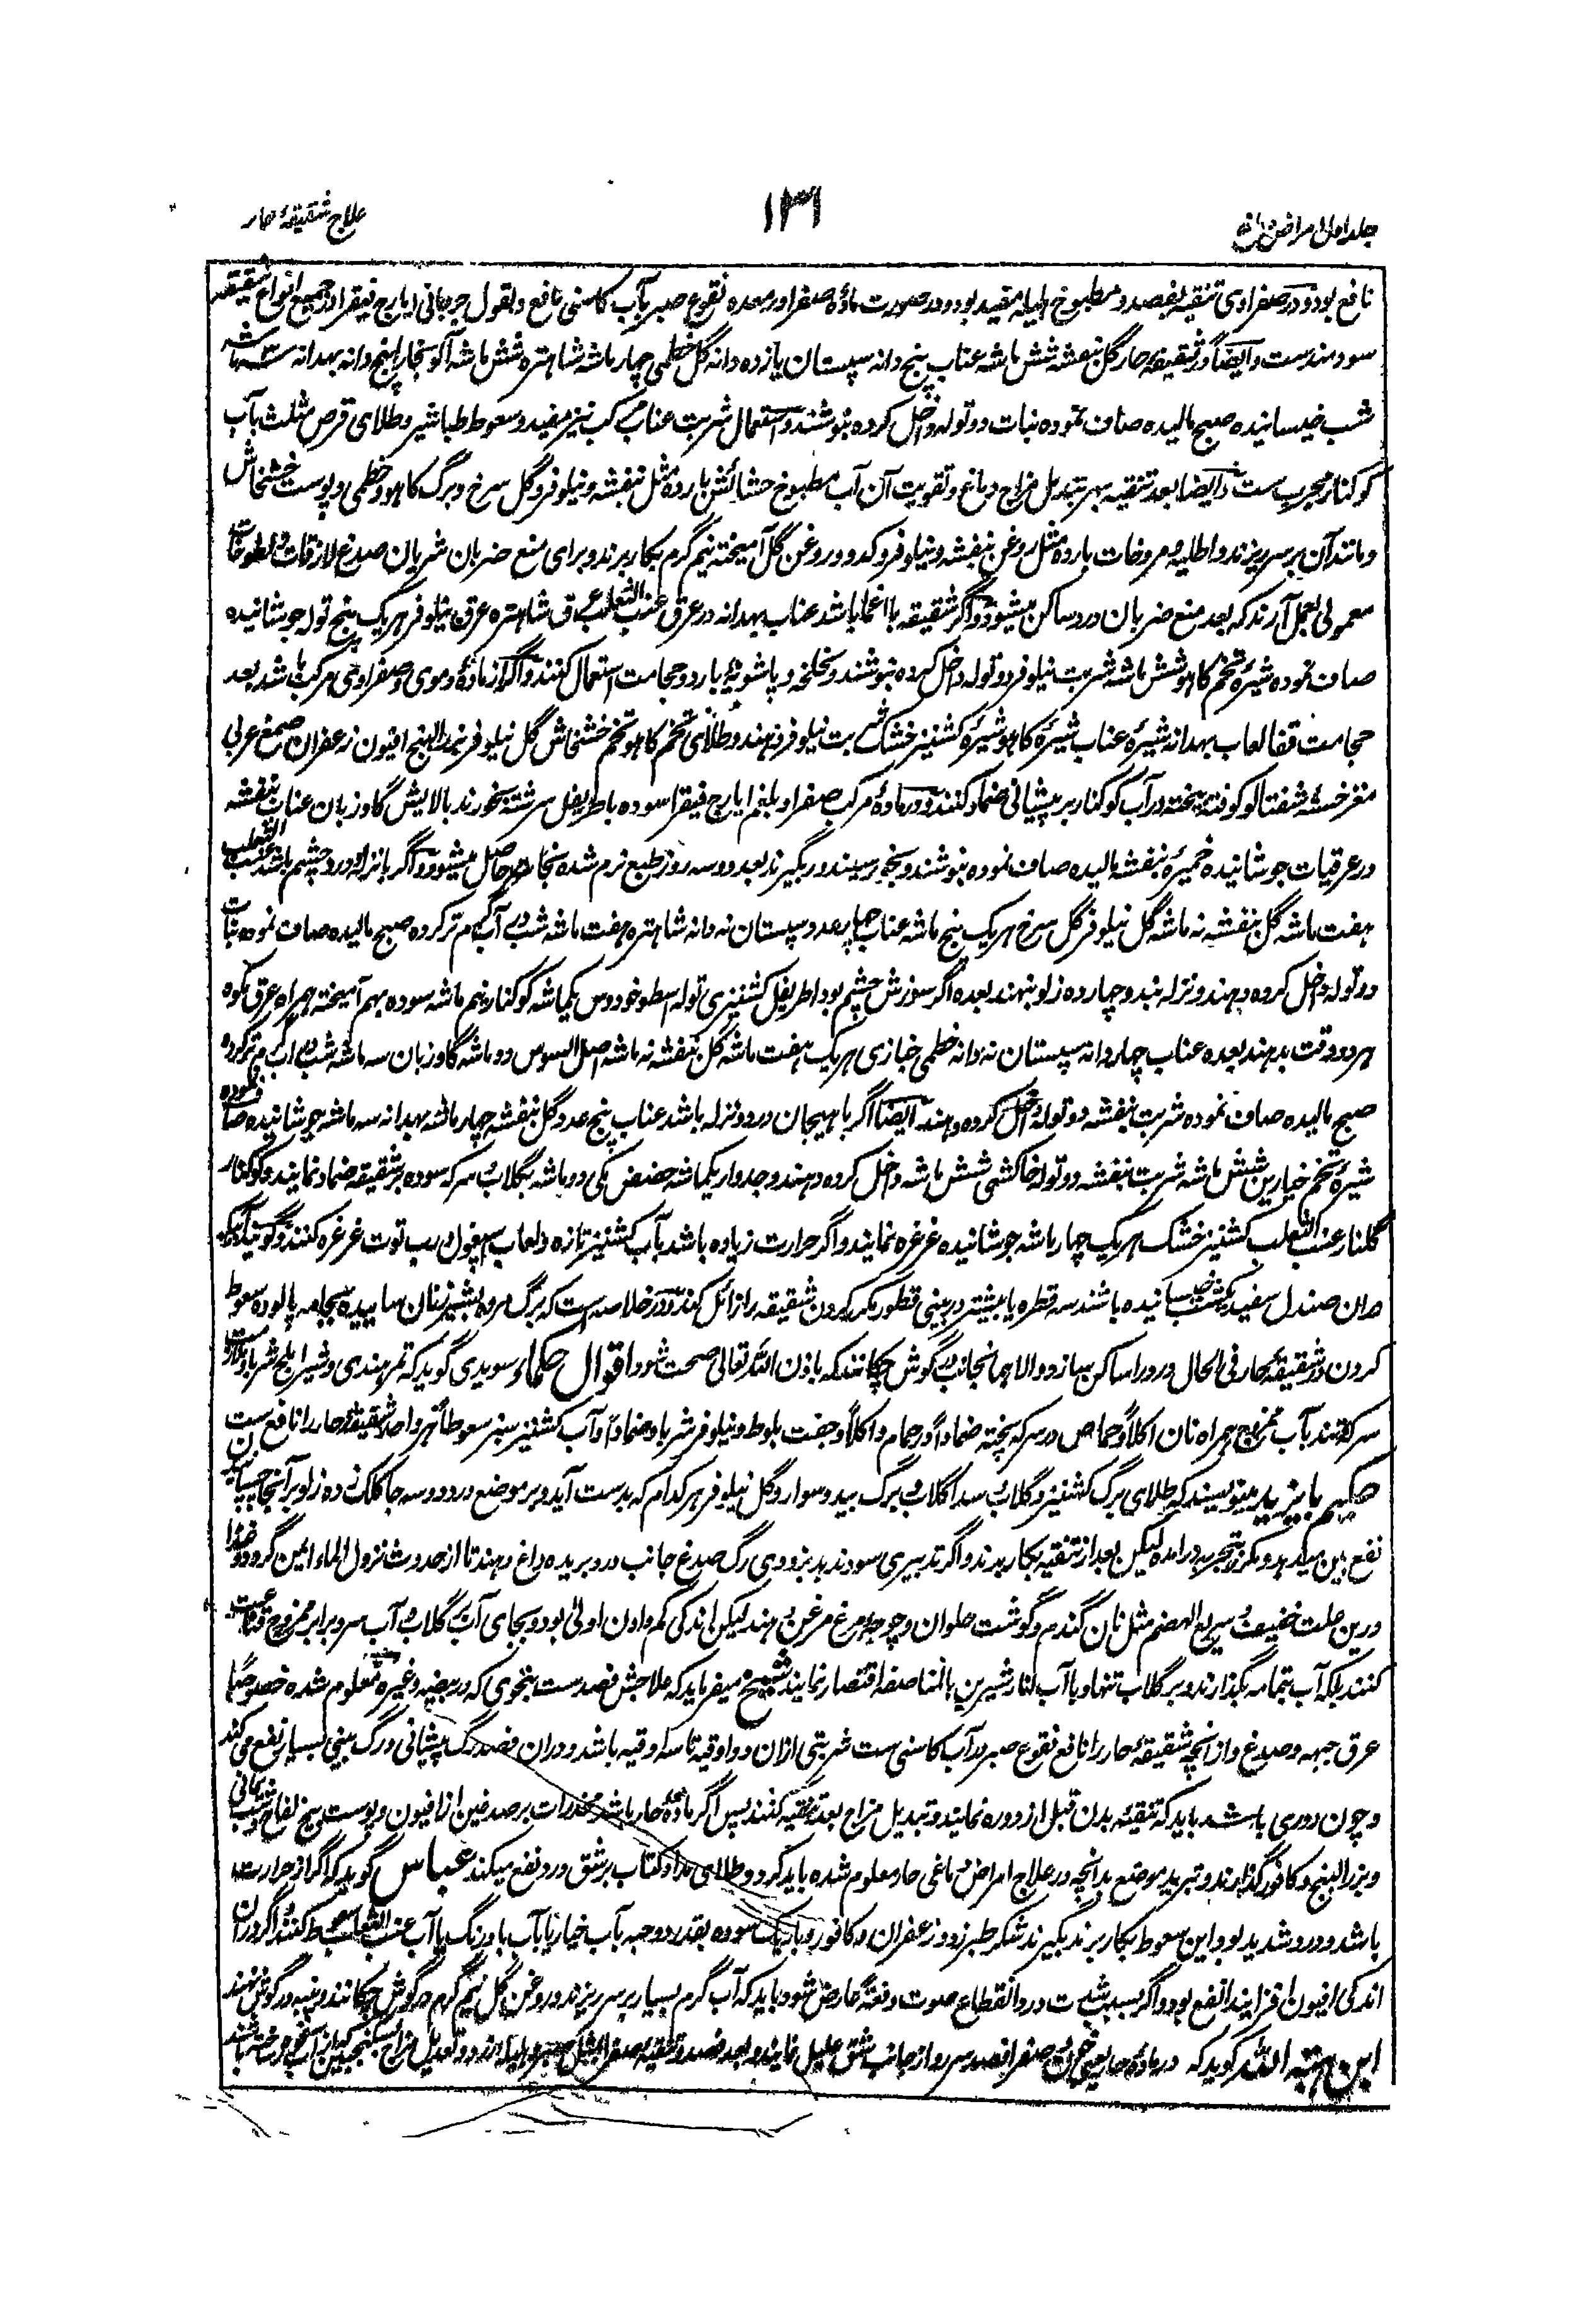 جلد اول امراض راس
۱۳۶
علاج شقیقهٔ حار
نافع بود و در صفراوی تنقیه بفصد و مطبوخ هلیله مفید بود و در صورت مادهٔ صفرا در معده نقوع صبر بآب کاسنی نافع و بقول جرجانی ایارج فیقرا در جمیع انواع شقیقه
سودمندست و ایضاً در شقیقهٔ حار گل بنفشه شش ماشه عناب پنج دانه سپستان یازده دانه گل خطمی چهار ماشه شاهتره شش ماشه آلو بخارا پنج دانه بهدانه سه ماشه
شب خیسانیده صبح مالیده صاف نموده نبات دو توله داخل کرده بنوشند و استعمال شربت عناب مرکب نیز مفید و سعوط طباشیر و طلای قرص مثلث بآب
کوکنار مجرب ست و ایضا بعد تنقیه بهر تبدیل مزاج دماغ و تقویت آن آب مطبوخ حشائش بارده مثل بنفشه و نیلوفر و گل سرخ و برگ کاهو و خطمی و پوست خشخاش
و مانند آن بر سر ریزند و اطلیه و مروخات بارده مثل روغن بنفشه و نیلوفر و کدو و روغن گل آمیخته نیم گرم بکار برند و برای منع ضربان شریان صدغ لازقات و لطوخات
معمولی بعمل آرند که بعد منع ضربان درد ساکن میشود و اگر شقیقه با اغما باشد عناب بهدانه در عرق عنب الثعلب عرق شاهتره عرق نیلوفر هریک پنج توله جوشانیده
صاف نموده شیرهٔ تخم کاهو شش ماشه شربت نیلوفر دو توله داخل کرده بنوشند و لخلخه و پاشویهٔ بارد و حجامت استعمال کنند و اگر از مادهٔ دموی و صفراوی مرکب باشد بعد
حجامت قفا لعاب بهدانه شیرهٔ عناب شیرهٔ کاهو شیرهٔ کشنیز خشک شربت نیلوفر دهند و طلای تخم کاهو تخم خشخاش گل نیلوفر بزرالبنج افیون زعفران صمغ عربی
مغز خستهٔ شفتالو کوفته بیخته در آب کوکنار بر پیشانی ضماد کنند و در مادهٔ مرکب صفرا و بلغم ایارج فیقرا سوده باطریفل سرشته بخورند بالایش گاوزبان عناب بنفشه
در عرقیات جوشانیده خمیرهٔ بنفشه مالیده صاف نموده بنوشند و بخور سپند در بگیرند بعد دو سه روز طبع نرم شده نجات حاصل میشود و اگر با نزله و درد چشم باشد عنب الثعلب
هفت ماشه گل بنفشه نه ماشه گل نیلوفر گل سرخ هریک پنج ماشه عناب چهار عدد سپستان نه دانه شاهتره هفت ماشه شب در آب گرم تر کرده صبح مالیده صاف نموده نبات
دو توله داخل کرده دهند و نزله بند و چهارده زلو نهند بعده اگر سوزش چشم بود اطریفل کشنیزی توله اسطوخودوس یکماشه کوکنار نیم ماشه سوده بهم آمیخته همراه عرق مکوه
هر دو وقت بدهند بعده عناب چهار دانه سپستان نه دانه خطمی خبازی هریک هفت ماشه گل بنفشه نه ماشه اصل السوس دو ماشه گاوزبان سه ماشه شب در آب گرم تر کرده
صبح مالیده صاف نموده شربت بنفشه دو توله داخل کرده دهند ایضا اگر با هیجان درد و نزله باشد عناب پنج عدد گل بنفشه چهار ماشه بهدانه سه ماشه جوشانیده صاف نموده
شیرهٔ تخم خیارین شش ماشه شربت بنفشه دو توله خاکشی شش ماشه داخل کرده دهند و جدوار یکماشه حضض مکی دو ماشه بگلاب و سرکه سوده بر شقیقه ضماد نمایند و کوکنار
گلنار عنب الثعلب کشنیز خشک هریک چهار ماشه جوشانیده غرغره نمایند و اگر حرارت زیاده باشد بآب کشنیز تازه و لعاب اسپغول و رب توت غرغره کنند و گویند آبیکه
در ان صندل سفید یکشب خیسانیده باشند سه قطره یا بیشتر در بینی قطور مکرر کردن شقیقه را زائل کند و در خلاصه است که برگ مروه بشیر زنان ساییده بجامه پالوده سعوط
کردن در شقیقهٔ حار فی الحال درد را ساکن سازد و الا بهمانجانب در گوش چکانند که باذن الله تعالی صحت شود اقوال حکماء سویدی گوید که تمر هندی و شیر املج شرباً و سویق
سرکه و قند بآب ممزوج همراه نان اکلاً و حماض در سرکه پخته ضماداً در حمام و اکلاً و جفت بلوط و نیلوفر شرباً و ضماداً و آب کشنیز سبز سعوطاً هر واحد شقیقهٔ حار را نافع ست
حکیم بایزید مینویسند که طلای برگ کشنیز و گلاب و سداگلاب و برگ بید و سوار و گل نیلوفر هر کدام که بدست آید و بر موضع درد دو سه جا کلک زده زلو بر آنجا چسپانیدن
نفع بین میدهد و مکرر بتجربه درآمده لیکن بعد از تنقیه بکار برند و اگر تدبیری سود ندهد بزودی رگ صدغ جانب درد بریده داغ دهند تا از حدوث نزول الماء ایمن گردد و غذا
درین علت خفیف و سریع الهضم مثل نان گندم و گوشت حلوان و چوجهٔ مرغ مرغن دهند لیکن اندکی کم دادن اولی بود و بجای آب گلاب و آب سرد برابر ممزوج قناعت
کنند بلکه آب بتمامه بگذارند و بر گلاب تنها و یا آب انار شیرین بالمناصفه اقتصار نمایند شیخ میفرماید که علاجش فصدست بنحوی که در بیضه و غیره معلوم شده خصوصاً
عرق جبهه و صدغ و از آنچه شقیقهٔ حار را نافع نقوع صبر در آب کاسنی ست شربتی ازان دو اوقیه تا سه اوقیه باشد و دران فصد رگ پیشانی و رگ بینی بسیار نفع می کند
و چون دوری باشد باید که تنقیهٔ بدن قبل از دوره نمایند و تبدیل مزاج بعد تنقیه کنند پس اگر ماده حار باشد مخدرات بر صدغین از افیون و پوست بیخ لفاح و شب یمانی
و بزرالبنج و کافور گذارند و تبرید موضع بدانچه در علاج امراض دماغی حار معلوم شده باید کرد و طلای مداد کتاب بر شق درد نفع میکند عباس گوید که اگر از حرارت
باشد و درد شدید بود این سعوط بکار برند بگیرند شکر طبرزد و زعفران و کافور و باریک سوده بقدر دو حبه بآب خیار یا بآب بادرنگ یا آب عنب الثعلب سعوط کنند و اگر در ان
اندکی افیون افزایند انفع بود و اگر بسبب شدت درد انقطاع صوت دفعةً عارض شود باید که آب گرم بسیار بر سر ریزند و روغن گل نیم گرم در گوش چکانند و پنبه در گوش نهند
ابن هبة الله گوید که در مادهٔ حار یعنی خون و صفرا فصد سررو از جانب شق علیل نمایند و بعد فصد تنقیهٔ صفرا